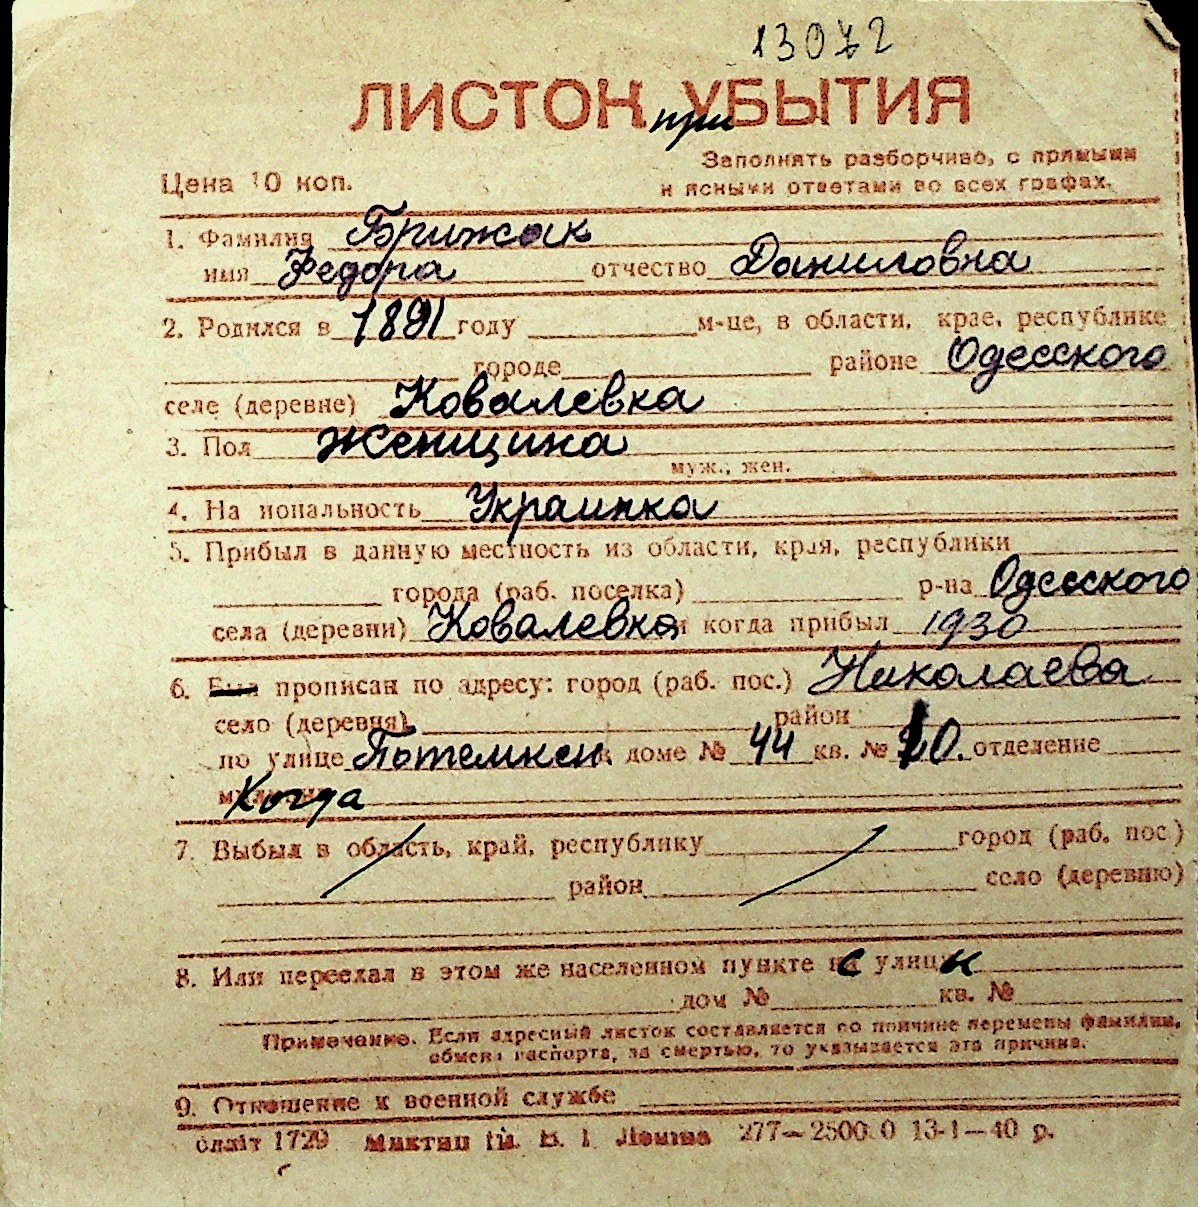 13072
ЛИСТОК при УБЫТИЯ
Заполнять разборчиво, с прямыми
Цена 10 коп.
и ясными ответами во всех графах.
1. Фамилия Брижак
имя Федора отчество Даниловна
2. Родился в 1891 году м-це, в области, крае, республике
городе районе Одесского
селе (деревне) Ковалевка
3. Пол Женщина
муж., жен.
4. На иональность Украинка
5. Прибыл в данную местность из области, края, республики
города (раб. поселка) р-на Одесского
села (деревни) Ковалевка и когда прибыл 1930
6. Был прописан по адресу: город (раб. пос.) Николаева
село (деревня) район
по улице Потемкен. доме № 44 кв. № 10. отделение
Когда
7. Выбыл в область, край, республику город (раб. пос.)
район село (деревню)
8. Или переехал в этом же населенном пункте с улицы
дом № кв. №
Примечание. Если адресный листок составляется по причине перемены фамилии,
обмена паспорта, за смертью, то указывается эта причина.
9. Отношение к военной службе
1729 277—2500.0 13-1—40 р.